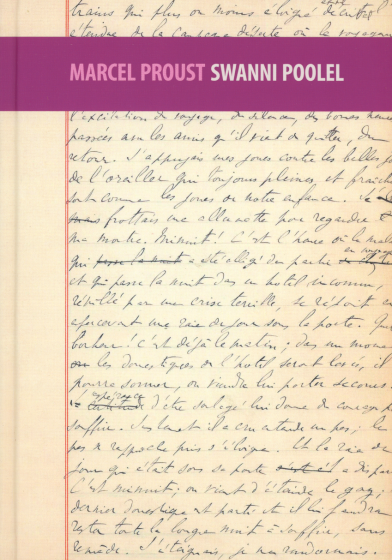 trains qui plus ou moins éloigné
l'étendue de la campagne déserte où le voyageur
MARCEL PROUST SWANNI POOLEL
l'excitation du voyage, du silence, des bonnes heures
passées avec les amis qu'il vient de quitter, du
retour. J'appuyais mes joues contre les belles jo
de l'oreiller qui toujours pleines, et fraîche
sont comme les joues de notre enfance. Je
frottais une allumette pour regarder
ma montre. Minuit! C'est l'heure où le mala
qui a été obligé de partir en voyage
et qui passe la nuit dans un hotel inconnu,
réveillé par une crise terrible, se réjouit
apercevant une raie de jour sous la porte. Qu
bonheur! C'est déjà le matin; dans un mome
les domestiques de l'hôtel seront levés, il
pourra sonner, on viendra lui porter secours.
espérance
d'être soulagé lui donne du courage
souffrir. Justement il a cru entendre un pas; le
pas se rapproche puis s'éloigne. Et la raie de
jour qui était sous sa porte a dispar
C'est minuit; on vient d'éteindre le gaz;
dernier domestique est parti et il faudra
rester toute la longue nuit à souffrir, sans
remède. Je me rendormais